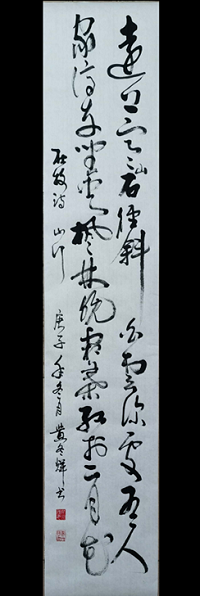 遠上寒山石徑斜 白雲深處有人
家停車坐愛楓林晚霜葉紅於二月花
杜牧詩 山行 庚子年冬月 黄冬輝书